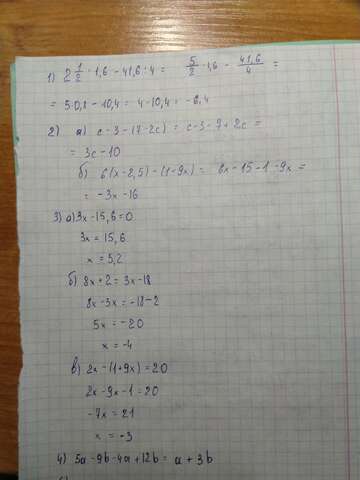 1) 2 1/2 · 1,6 - 41,6 : 4 = 5/2 · 1,6 - 41,6/4 =
= 5·0,8 - 10,4 = 4 - 10,4 = -6,4
2) а) c - 3 - (7 - 2c) = c - 3 - 7 + 2c =
= 3c - 10
б) 6(x - 2,5) - (1 - 9x) = 6x - 15 - 1 - 9x =
= -3x - 16
3) а) 3x - 15,6 = 0
3x = 15,6
x = 5,2
б) 8x + 2 = 3x - 18
8x - 3x = -18 - 2
5x = -20
x = -4
в) 2x - (1 + 9x) = 20
2x - 9x - 1 = 20
-7x = 21
x = -3
4) 5a - 9b - 4a + 12b = a + 3b